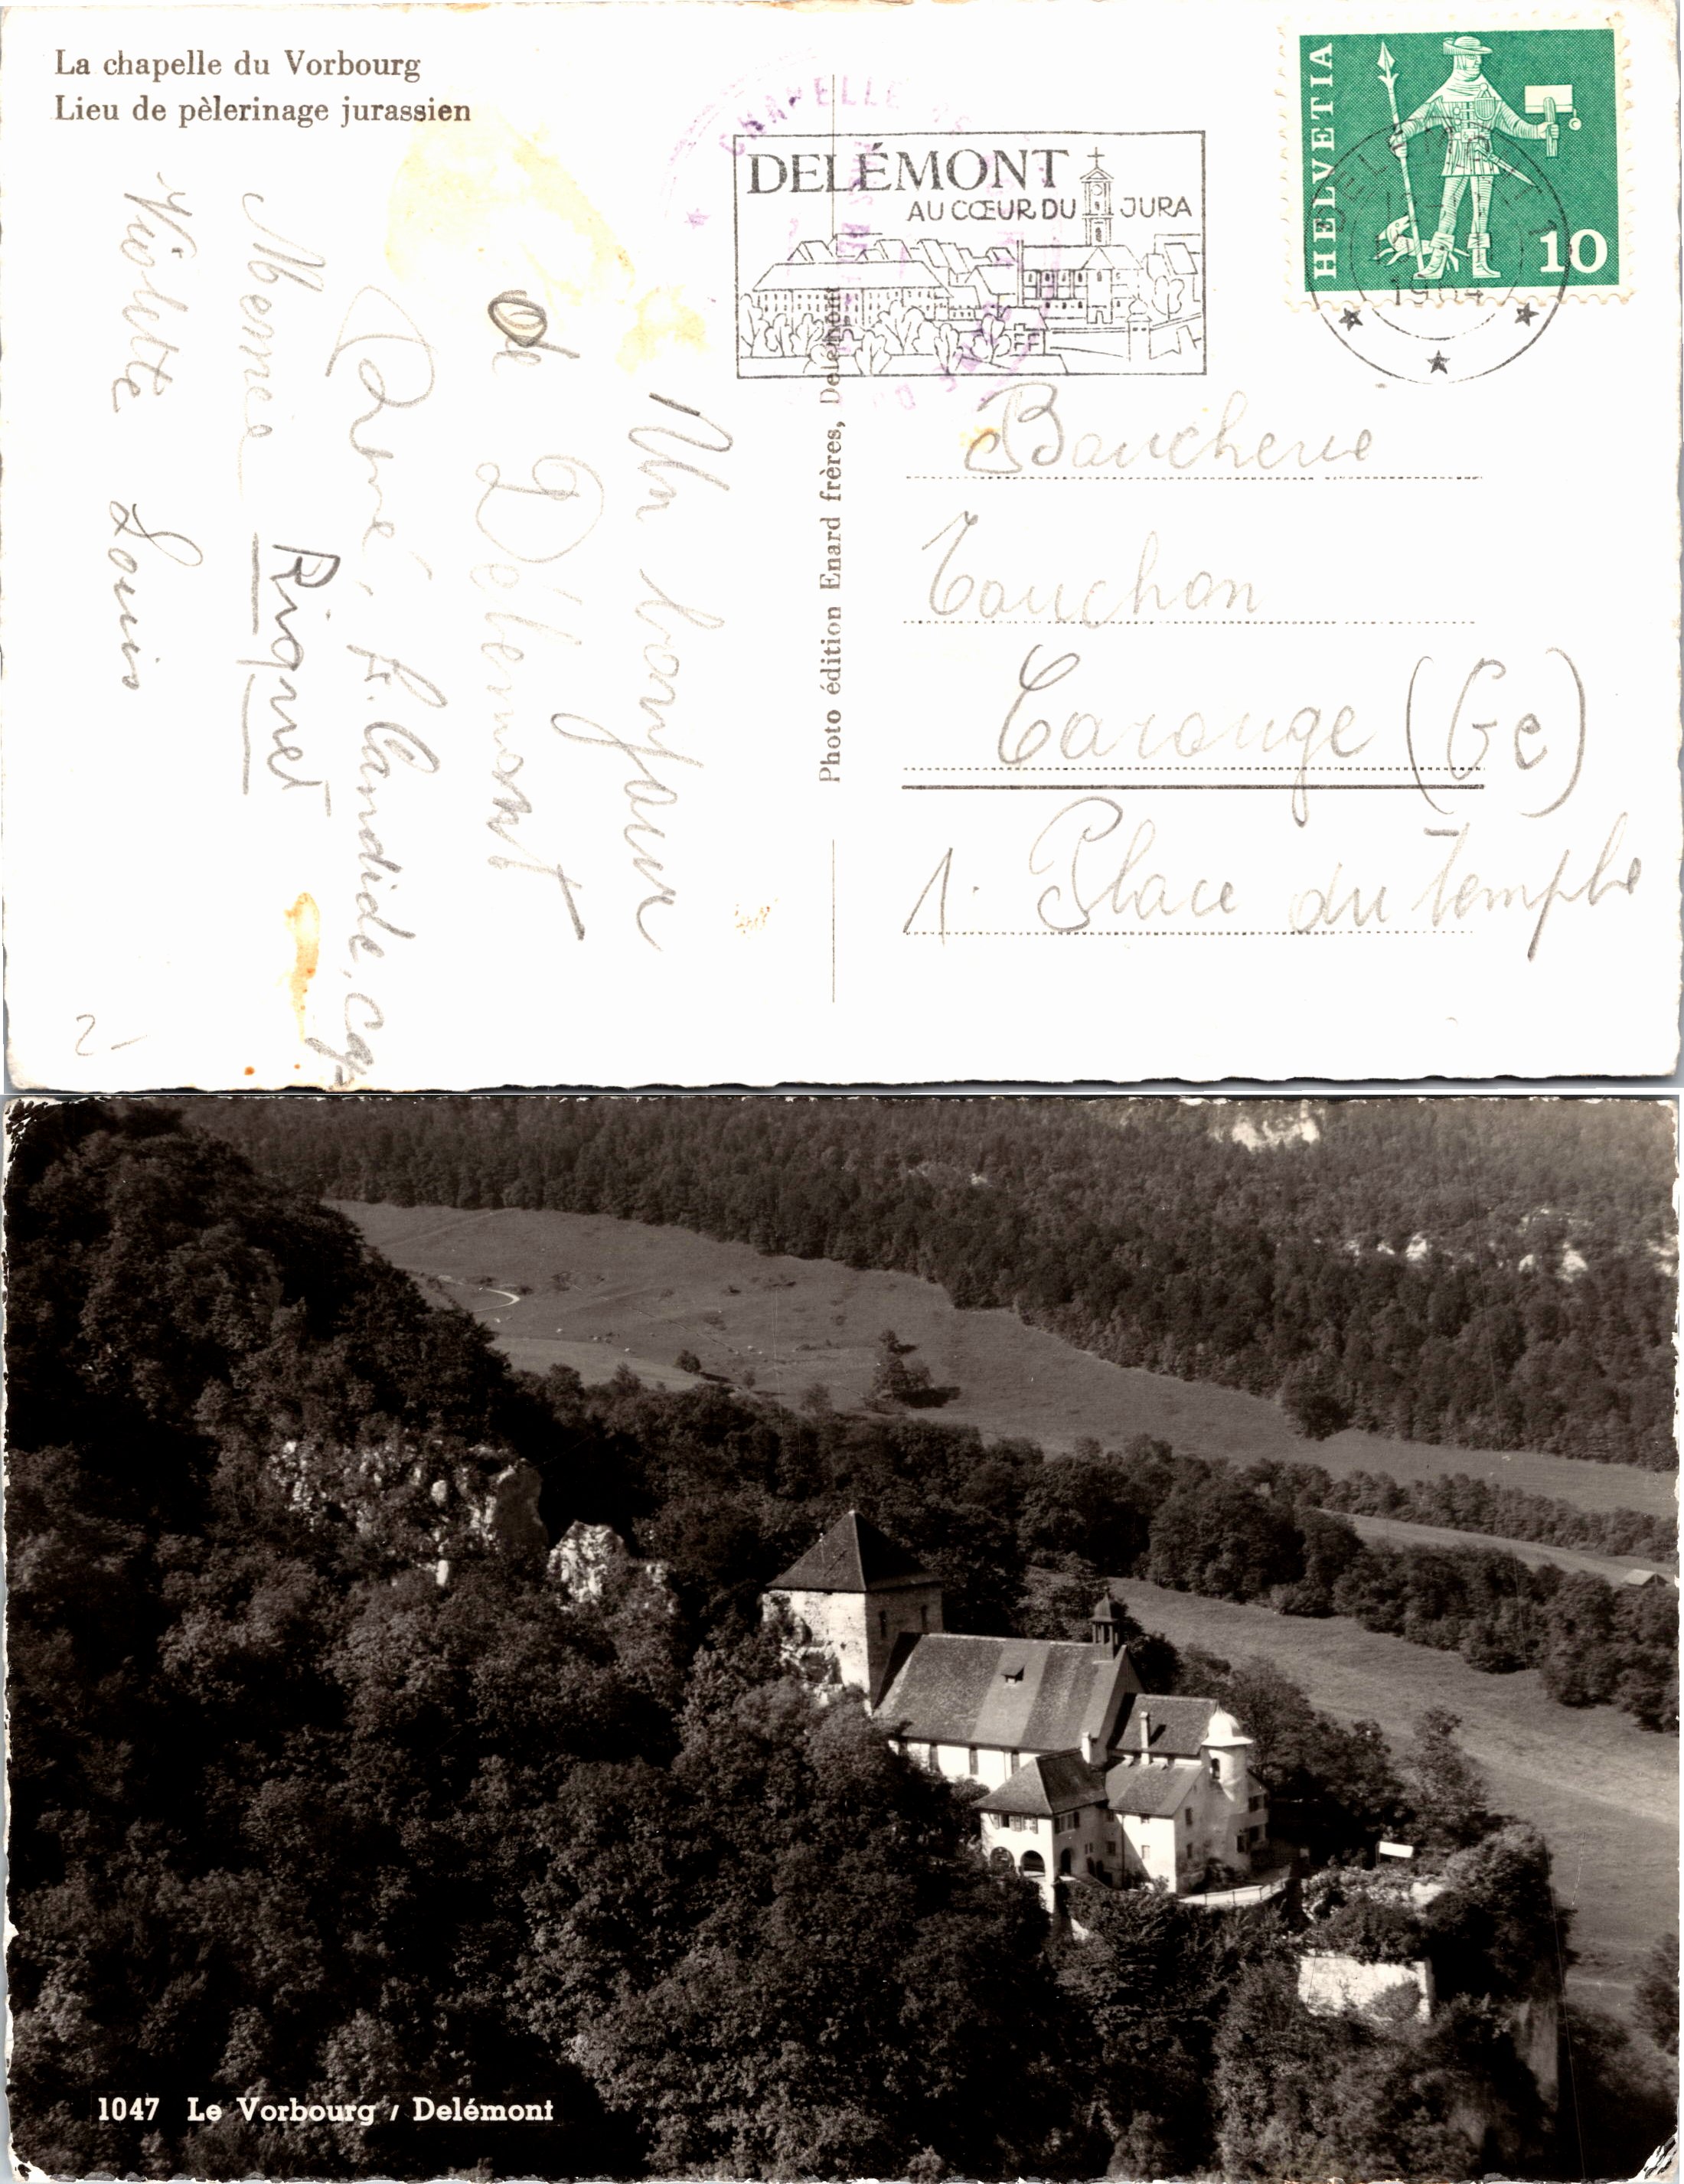 La chapelle du Vorbourg
Lieu de pèlerinage jurassien
DELÉMONT
AU CŒUR DU JURA
CHAPELLE
HELVETIA
10
DELÉMONT 1
1964
Un bonjour
de Délémont
René, F. Candide, cap
Riquet
Violette Louis
2-
Photo édition Enard frères, Delémont
Boucherie
Touchon
Carouge (Ge)
1. Place du temple
1047 Le Vorbourg / Delémont